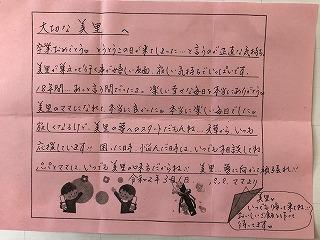 大切な 美里 へ
卒業おめでとう。とうとうこの日が来てしまった…と言うのが正直な気持ち。
美里が巣立って行く事が嬉しい反面、寂しい気持ちでいっぱいです。
18年間…あっと言う間でした。楽しい幸せな毎日を本当にありがとう。
美里のママになれて本当に良かった。本当に楽しい毎日でした。
寂しくなるけど、美里の夢へのスタートだもんね。いつも
応援しています!! 困った時、悩んだ時は、いつでも相談してね
パパとママは、いつでも美里の味方だからね!! 美里…夢に向かって頑張れ!!
令和2年3月1日 パパ、ママより
美里。
いつでも帰って来てね。
おいしいご飯を作って
待ってます。